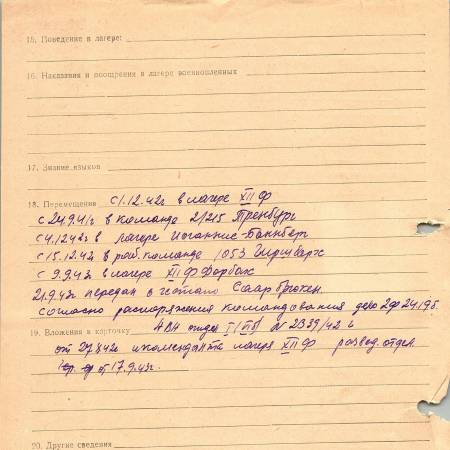 15. Поведение в лагере:
16. Наказания и поощрения в лагере военнопленных
17. Знание языков
18. Перемещения с 1.12.42г в лагере XII Ф
с 24.9.41г в команде 2/215 Тренбург
с 4.12.42г в лагере Иоганнис-Баннберг
с 15.12.42г в раб. команде 1053 Гиршбарх
с 9.9.43г в лагере XII Ф Форбах
21.9.43г передан в гестапо Саарбрюкен.
согласно распоряжения командования
19. Вложения в карточку № 2339/42 г
от коменданта лагеря XII Ф развод. отдел.
от 17.9.43г.
20. Другие сведения